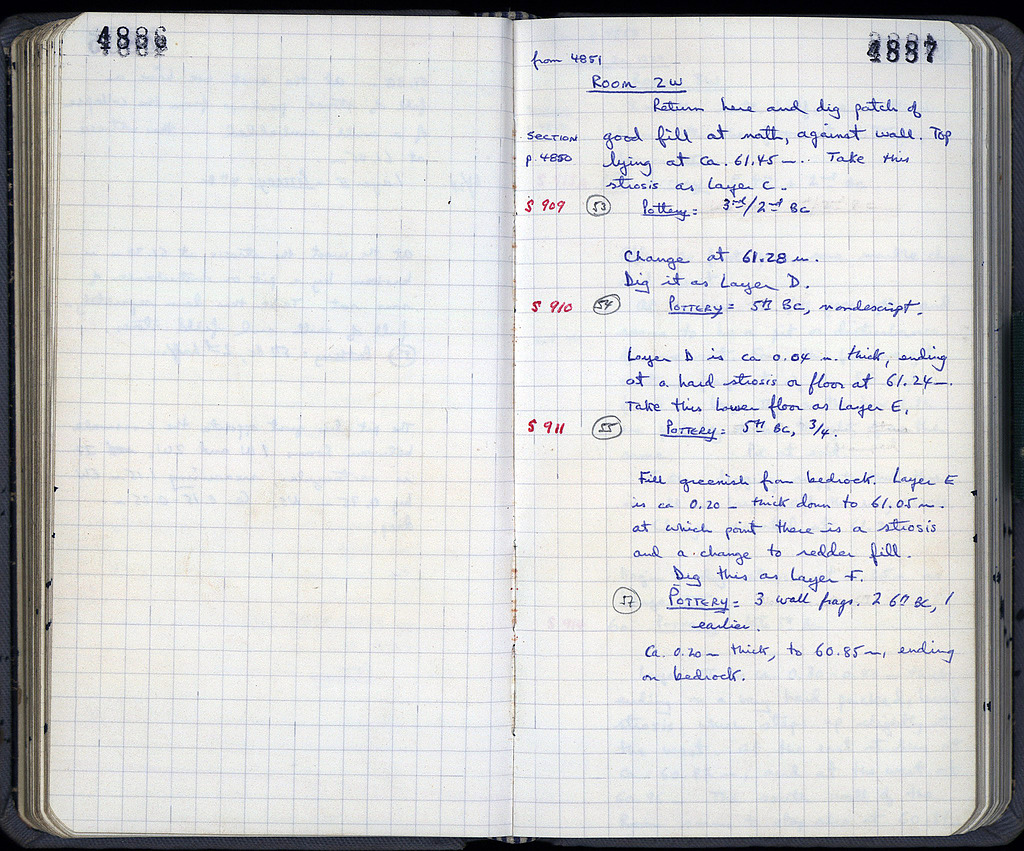 4886
4887
from 4851
Room 2W
Return here and dig patch of
SECTION good fill at north, against wall. Top
p. 4850 lying at ca. 61.45 m. Take this
strosis as Layer C.
S 909 53 Pottery = 3rd/2nd BC
Change at 61.28 m.
Dig it as Layer D.
S 910 54 POTTERY = 5th BC, nondescript.
Layer D is ca 0.04 m. thick, ending
at a hard strosis or floor at 61.24 m.
Take this lower floor as Layer E.
S 911 55 POTTERY = 5th BC, 3/4.
Fill greenish from bedrock. Layer E
is ca 0.20 m thick down to 61.05 m.
at which point there is a strosis
and a change to redder fill.
Dig this as Layer F.
57 POTTERY = 3 wall frags. 2 6th BC, 1
earlier.
Ca. 0.20 m thick, to 60.85 m, ending
on bedrock.